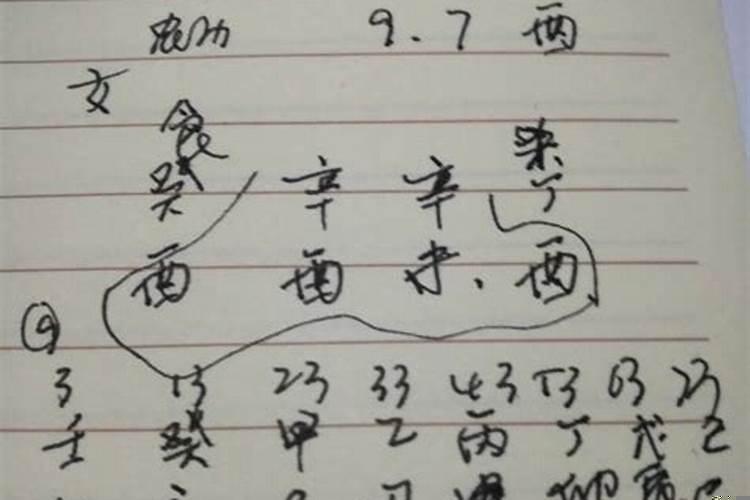 9.7 酉
女
食 杀
癸 辛 辛 丁
酉 酉 未、酉
9
3 13 23 33 43 53 63 73
壬 癸 甲 乙 丙 丁 戊 己